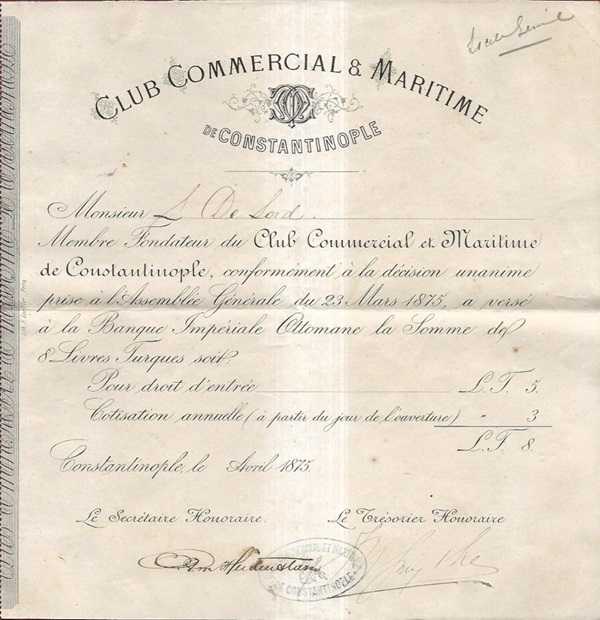 CLUB COMMERCIAL & MARITIME
DE CONSTANTINOPLE
Monsieur L De Lord
Membre Fondateur du Club Commercial et Maritime
de Constantinople, conformément à la décision unanime
prise à l'Assemblée Générale du 23 Mars 1875, a versé
à la Banque Impériale Ottomane la Somme de
8 Livres Turques soit:
Pour droit d'entrée L.T. 5.
Cotisation annuelle (à partir du jour de l'ouverture) " 3
L.T. 8.
Constantinople, le Avril 1875.
Le Secrétaire Honoraire. Le Trésorier Honoraire
DE CONSTANTINOPLE